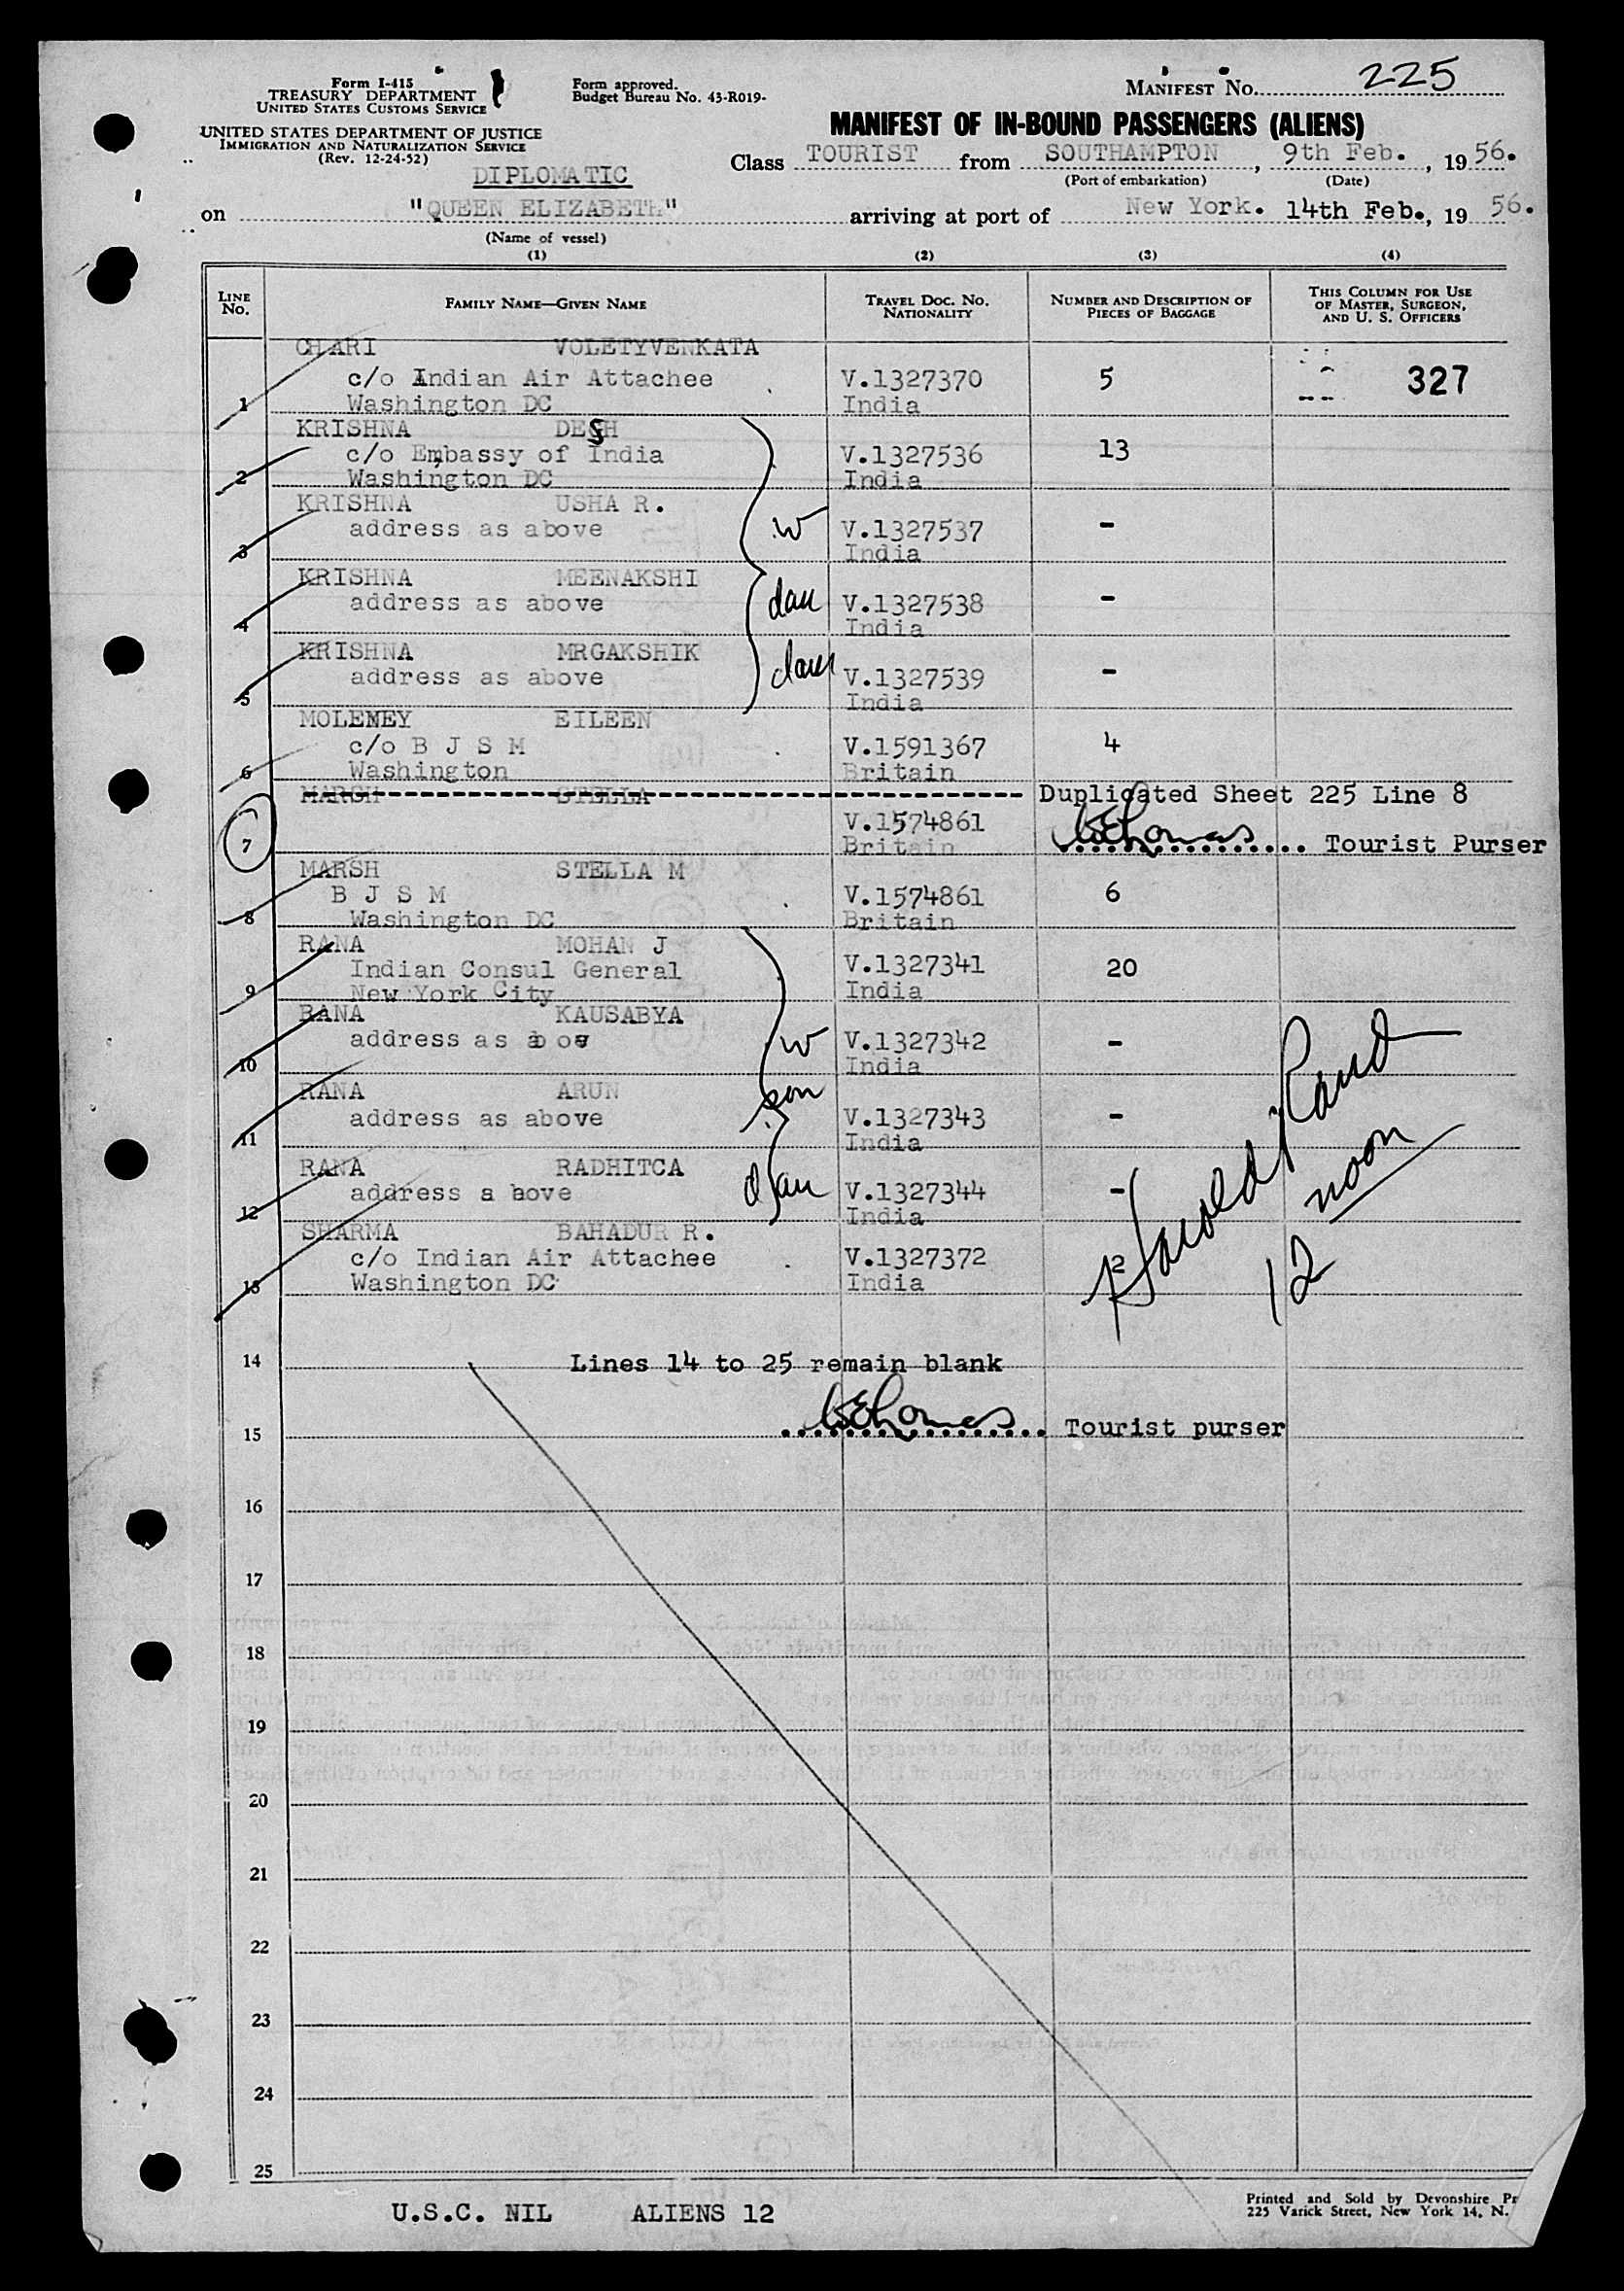 Form I-415
TREASURY DEPARTMENT
UNITED STATES CUSTOMS SERVICE
UNITED STATES DEPARTMENT OF JUSTICE
IMMIGRATION AND NATURALIZATION SERVICE
(Rev. 12-24-52)
Form approved.
Budget Bureau No. 43-R019-
MANIFEST NO. 225
MANIFEST OF IN-BOUND PASSENGERS (ALIENS)
Class TOURIST from SOUTHAMPTON, 9th Feb., 1956.
(Port of embarkation) (Date)
DIPLOMATIC
on "QUEEN ELIZABETH" arriving at port of New York. 14th Feb., 19 56.
(Name of vessel)
(1) (2) (3) (4)
LINE NO. FAMILY NAME—GIVEN NAME TRAVEL DOC. NO. NATIONALITY NUMBER AND DESCRIPTION OF PIECES OF BAGGAGE THIS COLUMN FOR USE OF MASTER, SURGEON, AND U. S. OFFICERS
CHARI VOLETYVENKATA
c/o Indian Air Attachee V.1327370 5 327
1 Washington DC India
KRISHNA DESH
c/o Embassy of India V.1327536 13
2 Washington DC India
KRISHNA USHA R.
address as above w V.1327537 -
3 India
KRISHNA MEENAKSHI
address as above dau V.1327538 -
4 India
KRISHNA MRGAKSHIK
address as above dau V.1327539 -
5 India
MOLENEY EILEEN
c/o B J S M V.1591367 4
6 Washington Britain
MARSH STELLA Duplicated Sheet 225 Line 8
V.1574861
7 Britain Tourist Purser
MARSH STELLA M
B J S M V.1574861 6
8 Washington DC Britain
RANA MOHAN J
Indian Consul General V.1327341 20
9 New York City India
RANA KAUSABYA
address as abov w V.1327342 -
10 India
RANA ARUN
address as above son V.1327343 -
11 India
RANA RADHITCA
address a bove dau V.1327344 -
12 India
SHARMA BAHADUR R.
c/o Indian Air Attachee V.1327372 2
13 Washington DC India
Harold Rand
12 noon
14 Lines 14 to 25 remain blank
15 Tourist purser
16
17
18
19
20
21
22
23
24
25
U.S.C. NIL ALIENS 12
Printed and Sold by Devonshire Pr
225 Varick Street, New York 14, N.